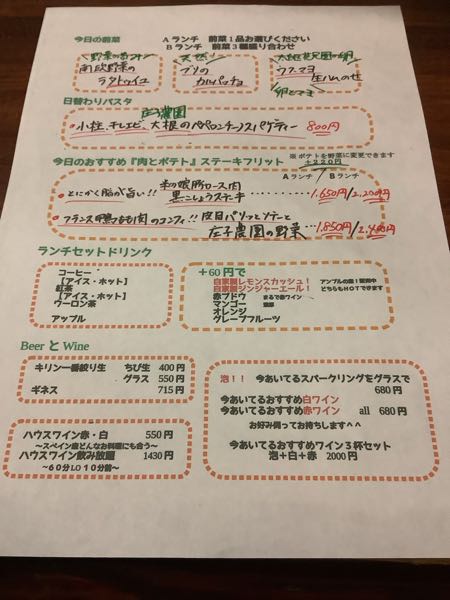 今日の前菜 Aランチ 前菜1品お選びください
Bランチ 前菜3種盛り合わせ
南欧野菜の
ラタトゥイユ
天然
ブリの
カルパッチョ
ウフマヨ
生ハムのせ
卵とマヨ
日替わりパスタ
庄子農園
小柱、干しエビ、大根のペペロンチーノスパゲティー 800円
今日のおすすめ『肉とポテト』ステーキフリット ※ポテトを野菜に変更できます
+220円
Aランチ/Bランチ
・とにかく脂が旨い!! 米の娘豚ロース肉
黒こしょうステーキ 1,650円/2,200円
・フランス鴨もも肉のコンフィ!! 皮目パリッとソテーと
庄子農園の野菜 1,850円/2,400円
ランチセットドリンク
コーヒー
【アイス・ホット】
紅茶
【アイス・ホット】
ウーロン茶
アップル
+60円で
自家製レモンスカッシュ!
自家製ジンジャーエール!
アンブルの森!製造中
どちらもHOTできます
赤ブドウ まるで赤ワイン
マンゴー 濃厚
オレンジ
グレープフルーツ
Beer と Wine
キリン一番絞り生 ちび生 400円
グラス 550円
ギネス 715円
ハウスワイン赤・白 550円
～スペイン産どんなお料理にも合う～
ハウスワイン飲み放題 1430円
～60分LO10分前～
泡!! 今あいてるスパークリングをグラスで
680円
今あいてるおすすめ白ワイン
今あいてるおすすめ赤ワイン all 680円
お好み伺ってお持ちします^^
今あいてるおすすめワイン3杯セット
泡+白+赤 2000円